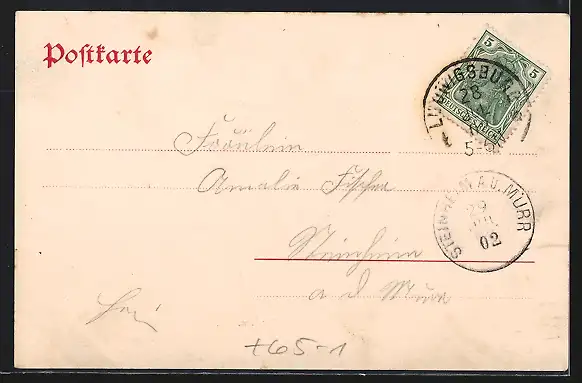 Postkarte
5 5
DEUTSCHES REICH
LUDWIGSBURG
28
5-6N
Fräulein
Amalie Fischer
Steinheim
a d Murr
STEINHEIM A.D. MURR
29
APR.
02
+65-1